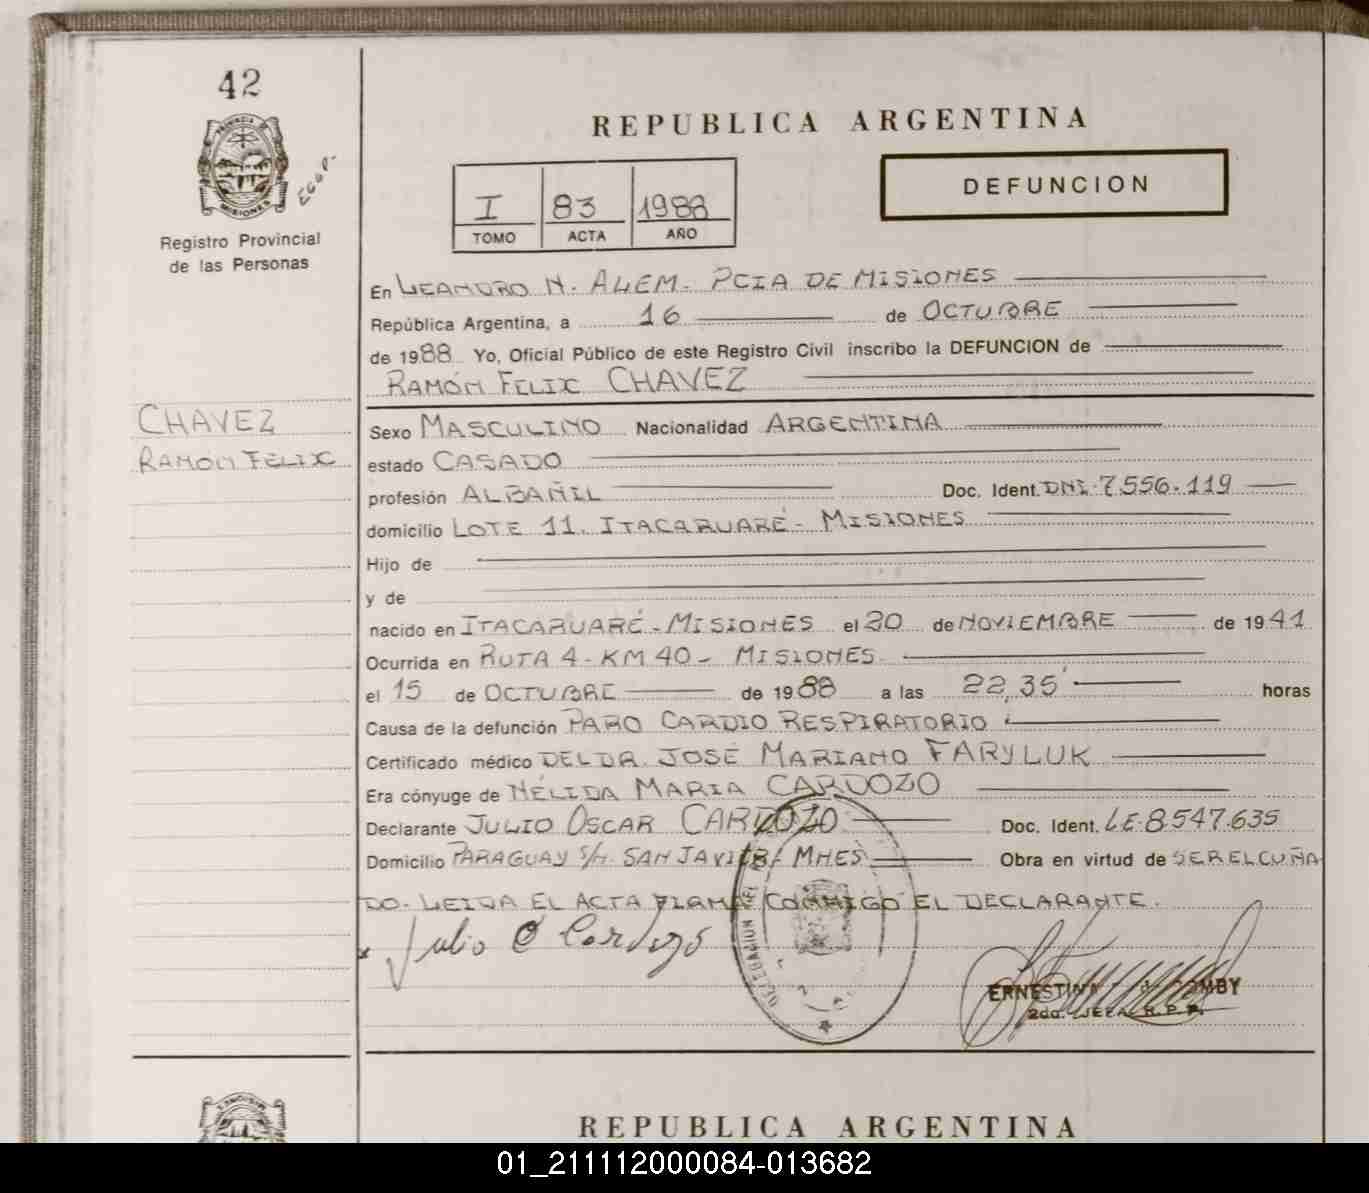 42
PROVINCIA DE
MISIONES
Registro Provincial
de las Personas
CHAVEZ
RAMON FELIX
REPUBLICA ARGENTINA
I 83 1988
TOMO ACTA AÑO
DEFUNCION
En LEANDRO N. ALEM - PCIA DE MISIONES
República Argentina, a 16 de OCTUBRE
de 1988 Yo, Oficial Público de este Registro Civil inscribo la DEFUNCION de
RAMÓN FELIX CHAVEZ
Sexo MASCULINO Nacionalidad ARGENTINA
estado CASADO
profesión ALBAÑIL Doc. Ident. DNI. 7.556.119
domicilio LOTE 11. ITACARUARÉ - MISIONES
Hijo de
y de
nacido en ITACARUARÉ - MISIONES el 20 de NOVIEMBRE de 1941
Ocurrida en RUTA 4 - KM 40 - MISIONES
el 15 de OCTUBRE de 1988 a las 22,35 horas
Causa de la defunción PARO CARDIO RESPIRATORIO
Certificado médico DEL DR. JOSÉ MARIANO FARYLUK
Era cónyuge de NÉLIDA MARIA CARDOZO
Declarante JULIO OSCAR CARDOZO Doc. Ident. L.E. 8.547.635
Domicilio PARAGUAY S/N. SAN JAVIER/ MNES Obra en virtud de SER EL CUÑA
DO. LEIDA EL ACTA FIRMA CONMIGO EL DECLARANTE.
Julio O Cardozo
DELEGACION DEL
ERNESTINA
2da. JEFA R.P.P.
REPUBLICA ARGENTINA
01_211112000084-013682